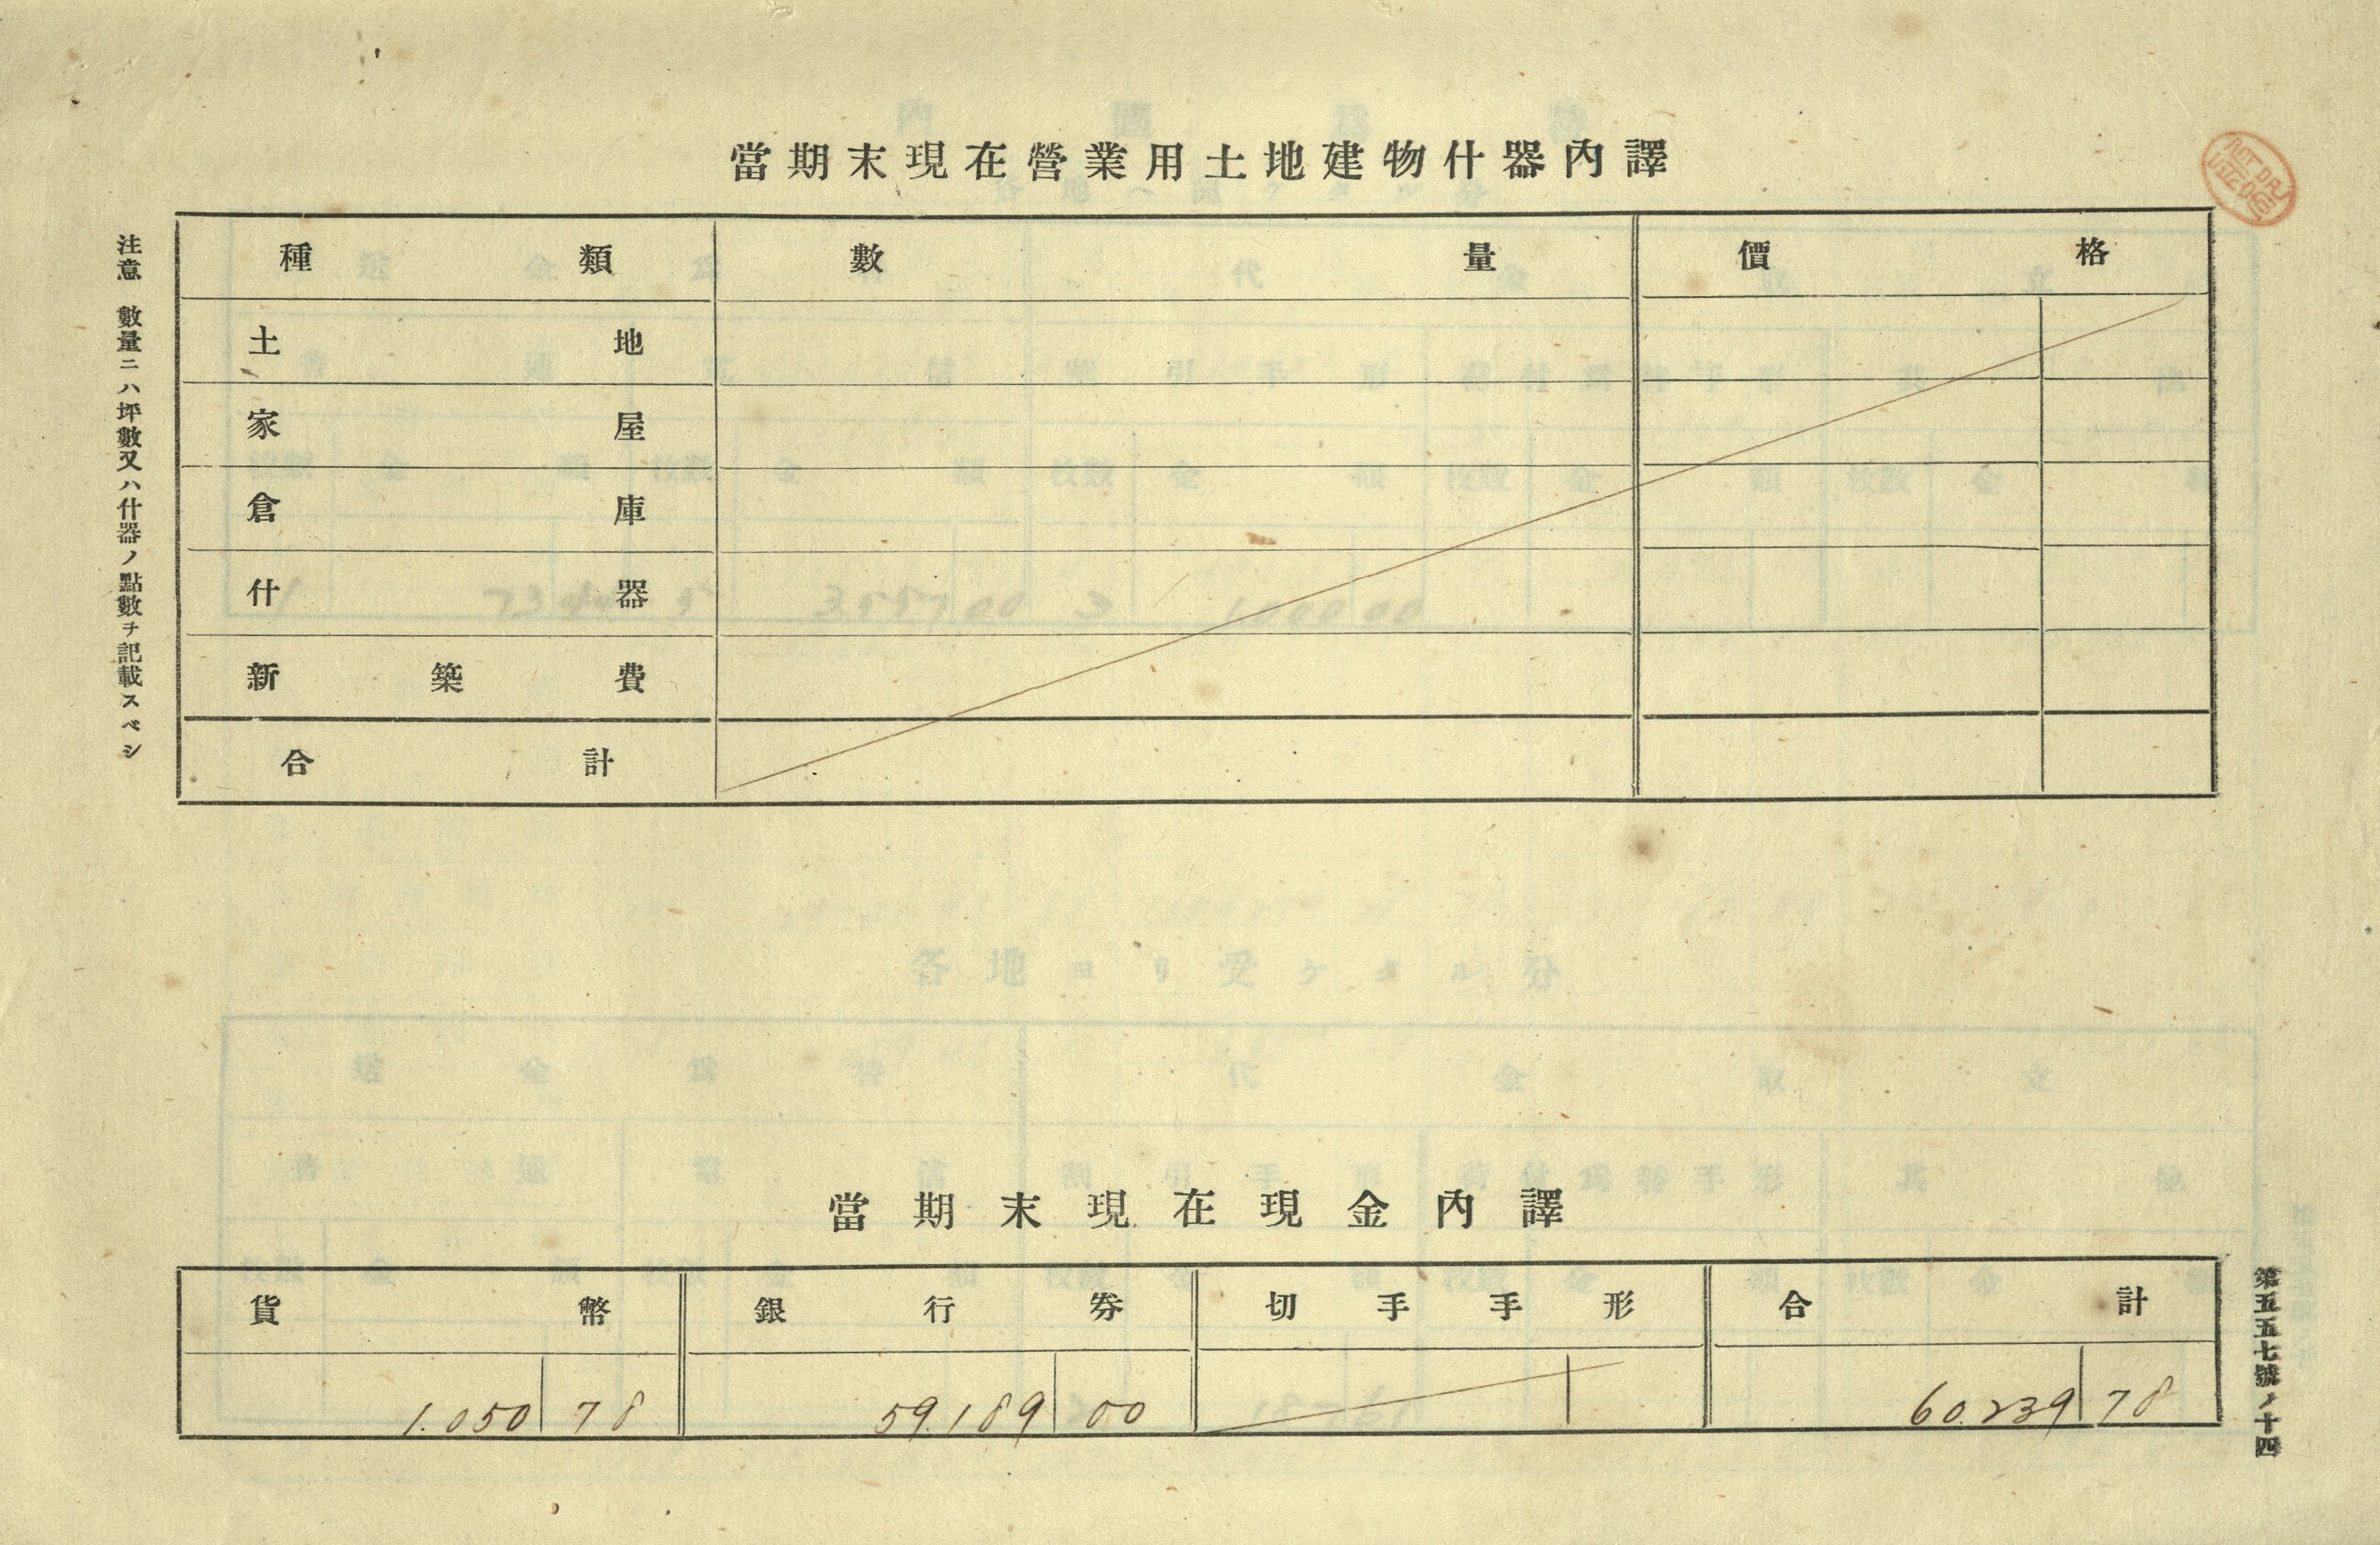 當期末現在營業用土地建物什器內譯
種類 數量 價格
土地
家屋
倉庫
什器
新築費
合計
注意 數量ニハ坪數又ハ什器ノ點數ヲ記載スベシ
當期末現在現金內譯
貨幣 銀行券 切手手形 合計
1.050 78 59.189 00 60.239 78
第五五七號ノ十四